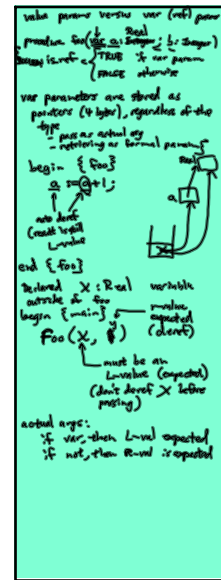 value params versus var (ref) params
Real
procedure foo(var a: Integer; b: Integer)
is_ref = { TRUE if var param
FALSE otherwise
var parameters are stored as
pointers (4 bytes), regardless of the
type
- pass as actual arg
- retrieving as formal param
begin {foo}
Real
a := a + 1;
a
auto deref
(result is still
L-value
X
end {foo}
Declared X: Real variable
outside of foo
begin {main}
r-value
expected
(deref)
Foo(X, )
must be an
L-value (expected)
(don't deref X before
passing)
actual args:
if var, then L-val expected
if not, then R-val is expected